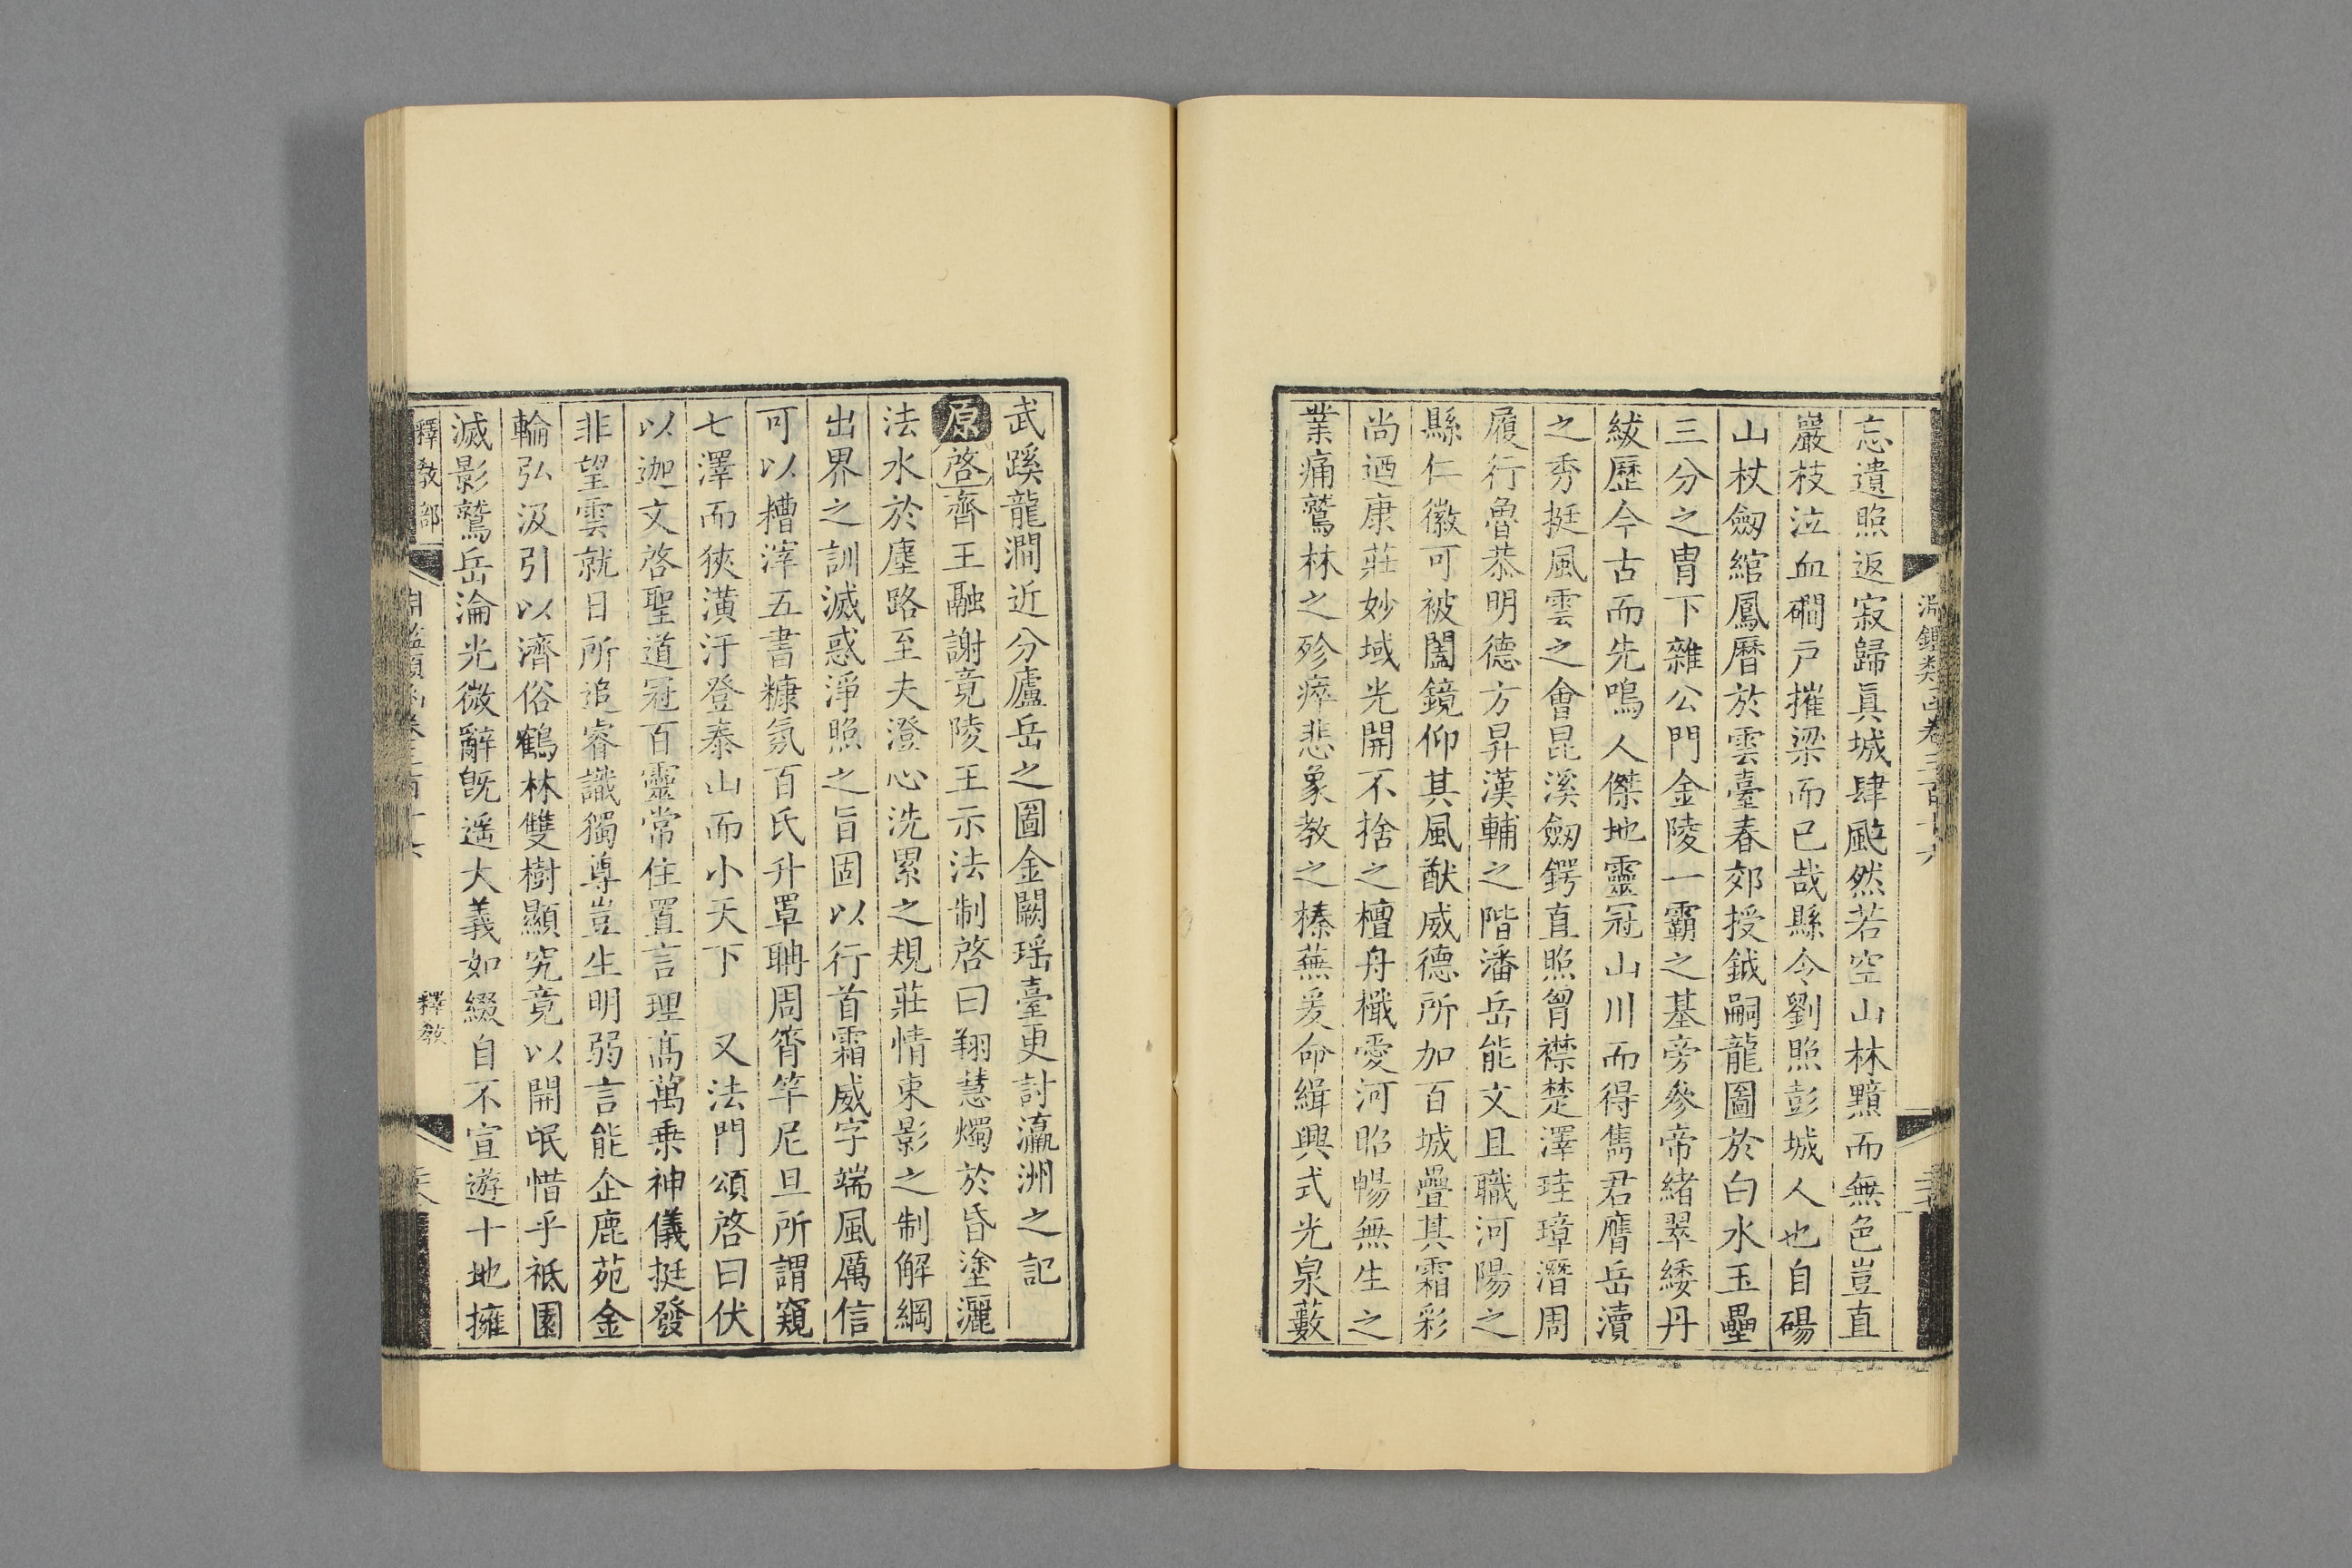 忘遺照返寂歸眞城肆颭然若空山林黯而無色豈直
巖枝泣血磵戸摧梁而已哉縣令劉照彭城人也自碭
山杖劔綰鳳曆於雲臺春郊授鉞嗣龍圖於白水玉壘
三分之胄下雜公門金陵一霸之基旁參帝緒翠緌丹
紱歷今古而先鳴人傑地靈冠山川而得雋君膺岳瀆
之秀挺風雲之會昆溪劔鍔直照胷襟楚澤珪璋潛周
履行魯恭明德方昇漢輔之階潘岳能文且職河陽之
縣仁徽可被闔鏡仰其風猷威德所加百城疊其霜彩
尚迺康莊妙域光開不捨之檀舟檝愛河昭暢無生之
業痛鷲林之殄瘁悲象教之榛蕪爰命緝興式光泉藪
武蹊龍澗近分廬岳之圖金闕瑶臺更討瀛洲之記
原啓齊王融謝竟陵王示法制啓曰翔慧燭於昏塗灑
法水於塵路至夫澄心洗累之規莊情束影之制解綱
出界之訓滅惑淨照之旨固以行首霜威字端風厲信
可以糟滓五書糠氛百氏升罩聃周筲竿尼旦所謂窺
七澤而狹潢汙登泰山而小天下 又法門頌啓曰伏
以迦文啓聖道冠百靈常住置言理髙萬乗神儀挺發
非望雲就日所追睿識獨尊豈生明弱言能企鹿苑金
輪弘汲引以濟俗鶴林雙樹顯究竟以開氓惜乎祇園
滅影鷲岳淪光微辭旣遥大義如綴自不宣遊十地擁
釋敎部
釋敎